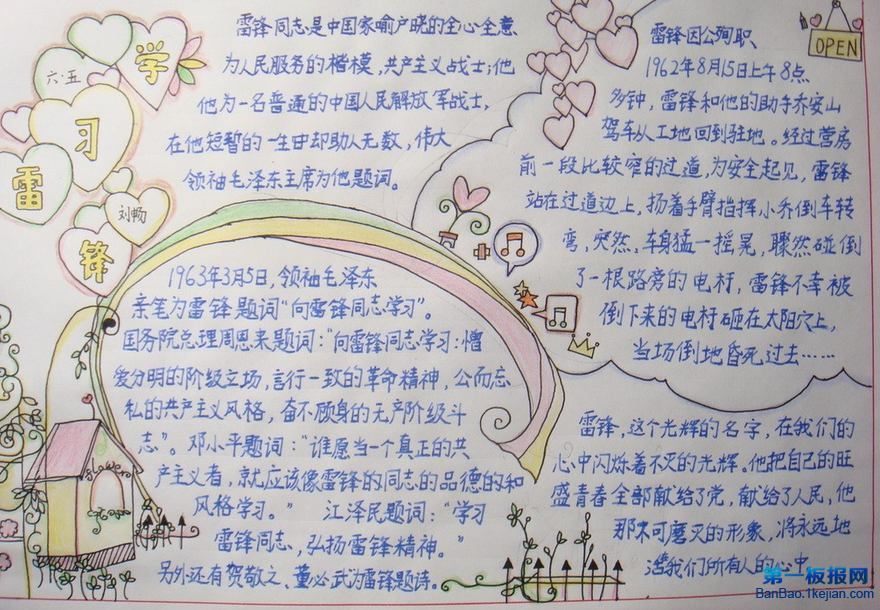 学
习
雷
锋
六·五
刘畅
雷锋同志是中国家喻户晓的全心全意
为人民服务的楷模,共产主义战士;他
他为一名普通的中国人民解放军战士,
在他短暂的一生中却助人无数,伟大
领袖毛泽东主席为他题词。
1963年3月5日,领袖毛泽东
亲笔为雷锋题词“向雷锋同志学习”。
国务院总理周恩来题词:“向雷锋同志学习:憎
爱分明的阶级立场,言行一致的革命精神,公而忘
私的共产主义风格,奋不顾身的无产阶级斗
志”。邓小平题词:“谁愿当一个真正的共
产主义者,就应该像雷锋的同志的品德的和
风格学习。” 江泽民题词:“学习
雷锋同志,弘扬雷锋精神。”
另外还有贺敬之、董必武为雷锋题诗。
OPEN
雷锋因公殉职
1962年8月15日上午8点
多钟,雷锋和他的助手乔安山
驾车从工地回到驻地。经过营房
前一段比较窄的过道,为安全起见,雷锋
站在过道边上,扬着手臂指挥小乔倒车转
弯,突然,车身猛一摇晃,骤然碰倒
了一根路旁的电杆,雷锋不幸被
倒下来的电杆砸在太阳穴上,
当场倒地昏死过去……
雷锋,这个光辉的名字,在我们的
心中闪烁着不灭的光辉。他把自己的旺
盛青春全部献给了党,献给了人民,他
那不可磨灭的形象,将永远地
活我们所有人的心中
第一板报网
BanBao.1kejian.com